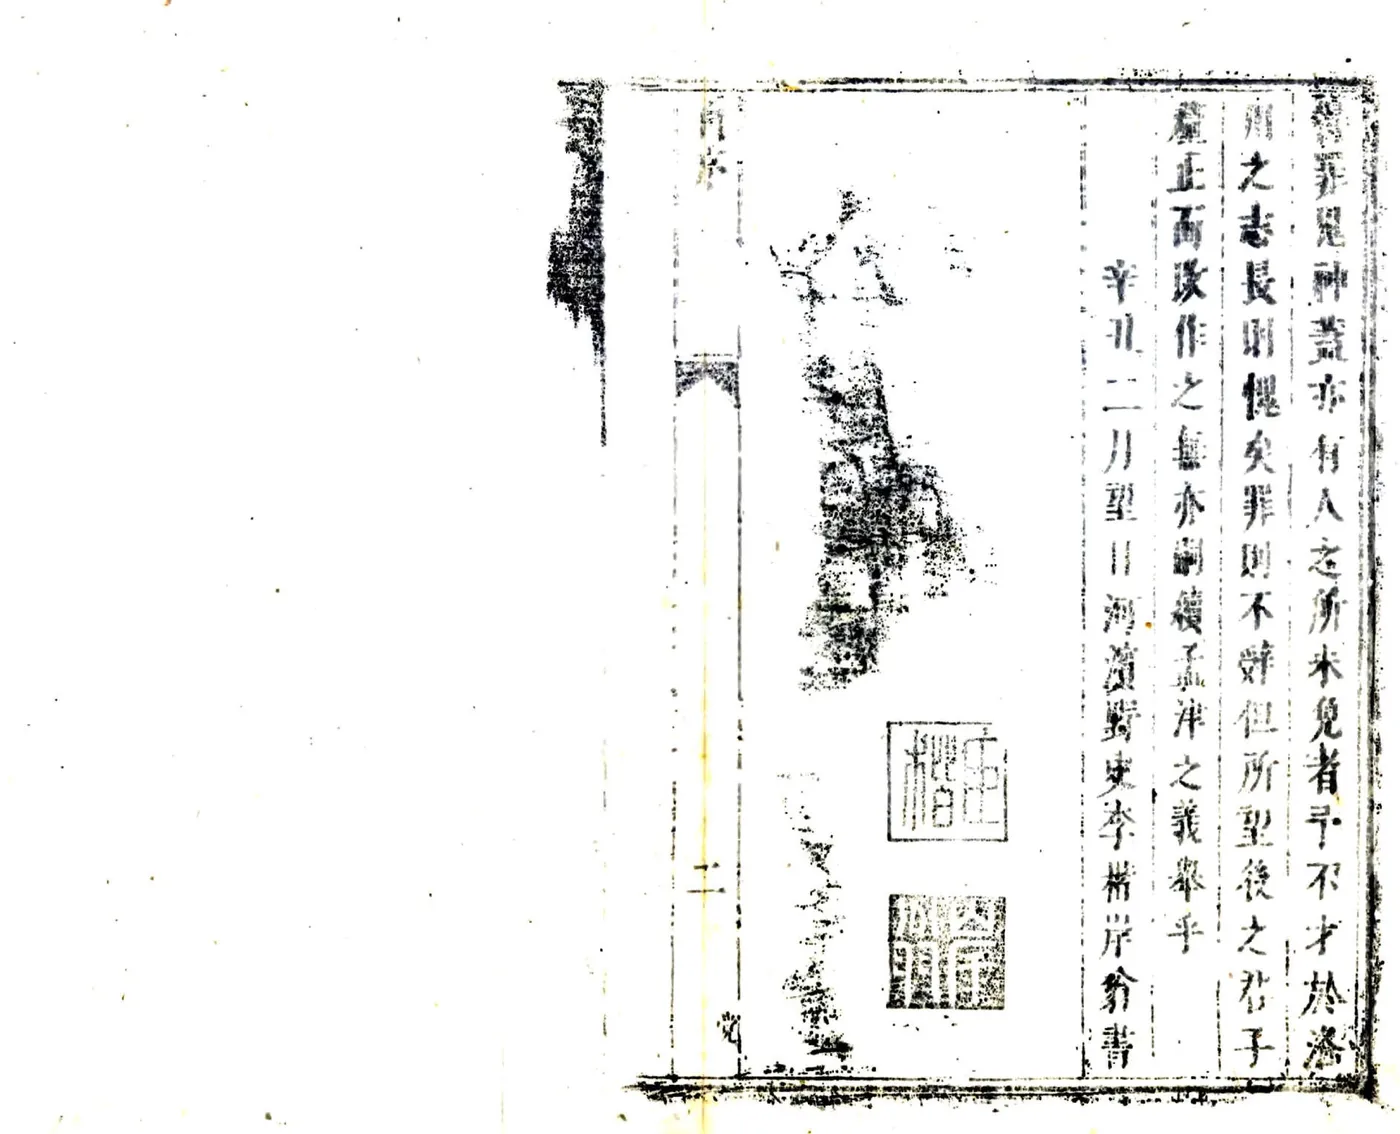 獲罪鬼神蓋亦有人之所未免者予不才於洛
州之志長則愧矣罪則不辤但所望後之君子
釐正而改作之無亦嗣續孟津之義舉乎
辛丑二月望日河濱野史李楷岸翁書
李楷
二